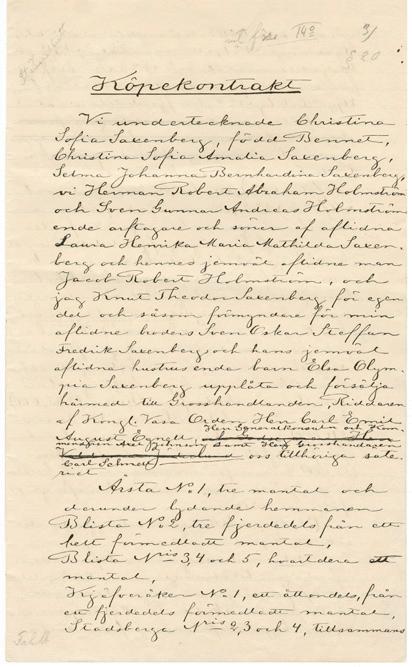 3/
§ 20
Köpekontrakt
Vi undertecknade Christina
Sofia Saxenberg, född Bennet,
Christina Sofia Amalia Saxenberg,
Selma Johanna Bernhardina Saxenberg,
vi Herman Robert Abraham Holmström
och Sven Gunnar Andreas Holmström
ende arftagare och söner af aflidna
Laura Henrika Maria Mathilda Saxen-
berg och hennes jemväl aflidne man
Jacob Robert Holmström, och
jag Knut Theodor Saxenberg för egen
del och såsom förmyndare för min
aflidne broders Sven Oskar Steffan
Fredrik Saxenbergs och hans jemväl
aflidna hustrus enda barn Elsa Olym-
pia Saxenberg upplåta och försälja
härmed till Grosshandlanden, Riddaren
af Kongl. Vasa Orden, Herr Carl Emil
Herr Generalkonsuln och
August samt Herr Grosshandlaren
Carl oss tillhöriga säte-
riet
Årsta No 1, tre mantal och
derunder lydande hemmanen
Blista No 2, tre fjerdedels från ett
helt förmedladt mantal,
Blista Nris 3, 4 och 5, hvartdera ett
mantal,
No 1, ett åttondels, från
ett fjerdedels förmedladt mantal,
Stadsberga Nris 2, 3 och 4, tillsammans